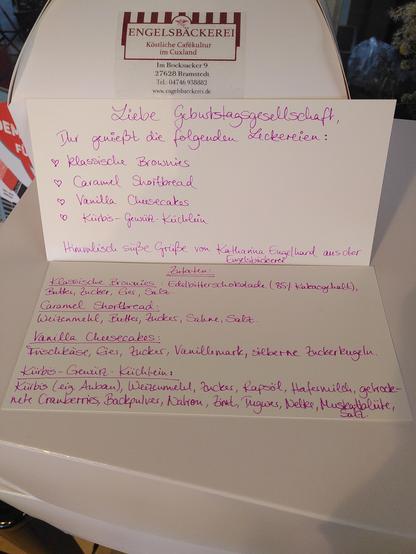 ENGELSBÄCKEREI
Köstliche Cafékultur
im Cuxland
Im Bocksacker 9
27628 Bramstedt
Tel.: 04746 938882
www.engelsbaeckerei.de
Liebe Geburtstagsgesellschaft,
Ihr genießt die folgenden Leckereien:
♡ klassische Brownies
♡ Caramel Shortbread
♡ Vanilla Cheesecakes
♡ Kürbis-Gewürz-Küchlein
Himmlisch süße Grüße von Katharina Engelhard aus der
Engelsbäckerei
Zutaten:
Klassische Brownies: Edelbitterschokolade (85% Kakaogehalt),
Butter, Zucker, Eier, Salz.
Caramel Shortbread:
Weizenmehl, Butter, Zucker, Sahne, Salz.
Vanilla Cheesecakes:
Frischkäse, Eier, Zucker, Vanillemark, silberne Zuckerkugeln.
Kürbis-Gewürz-Küchlein:
Kürbis (eig. Anbau), Weizenmehl, Zucker, Rapsöl, Hafermilch, getrock-
nete Cranberries, Backpulver, Natron, Zimt, Ingwer, Nelke, Muskatblüte,
Salz.